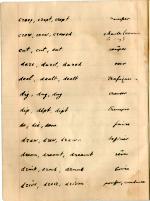 creep, crept, crept ramper
crow, crew, crowed
cut, cut, cut couper
dare, dared, dared oser
deal, dealt, dealt
dig, dug, dug creuser
dip, dipt, dipt
do, did, done faire
draw, drew, drawn
dream, dreamt, dreamt rêver
drink, drank, drunk boire
drive, drove, driven